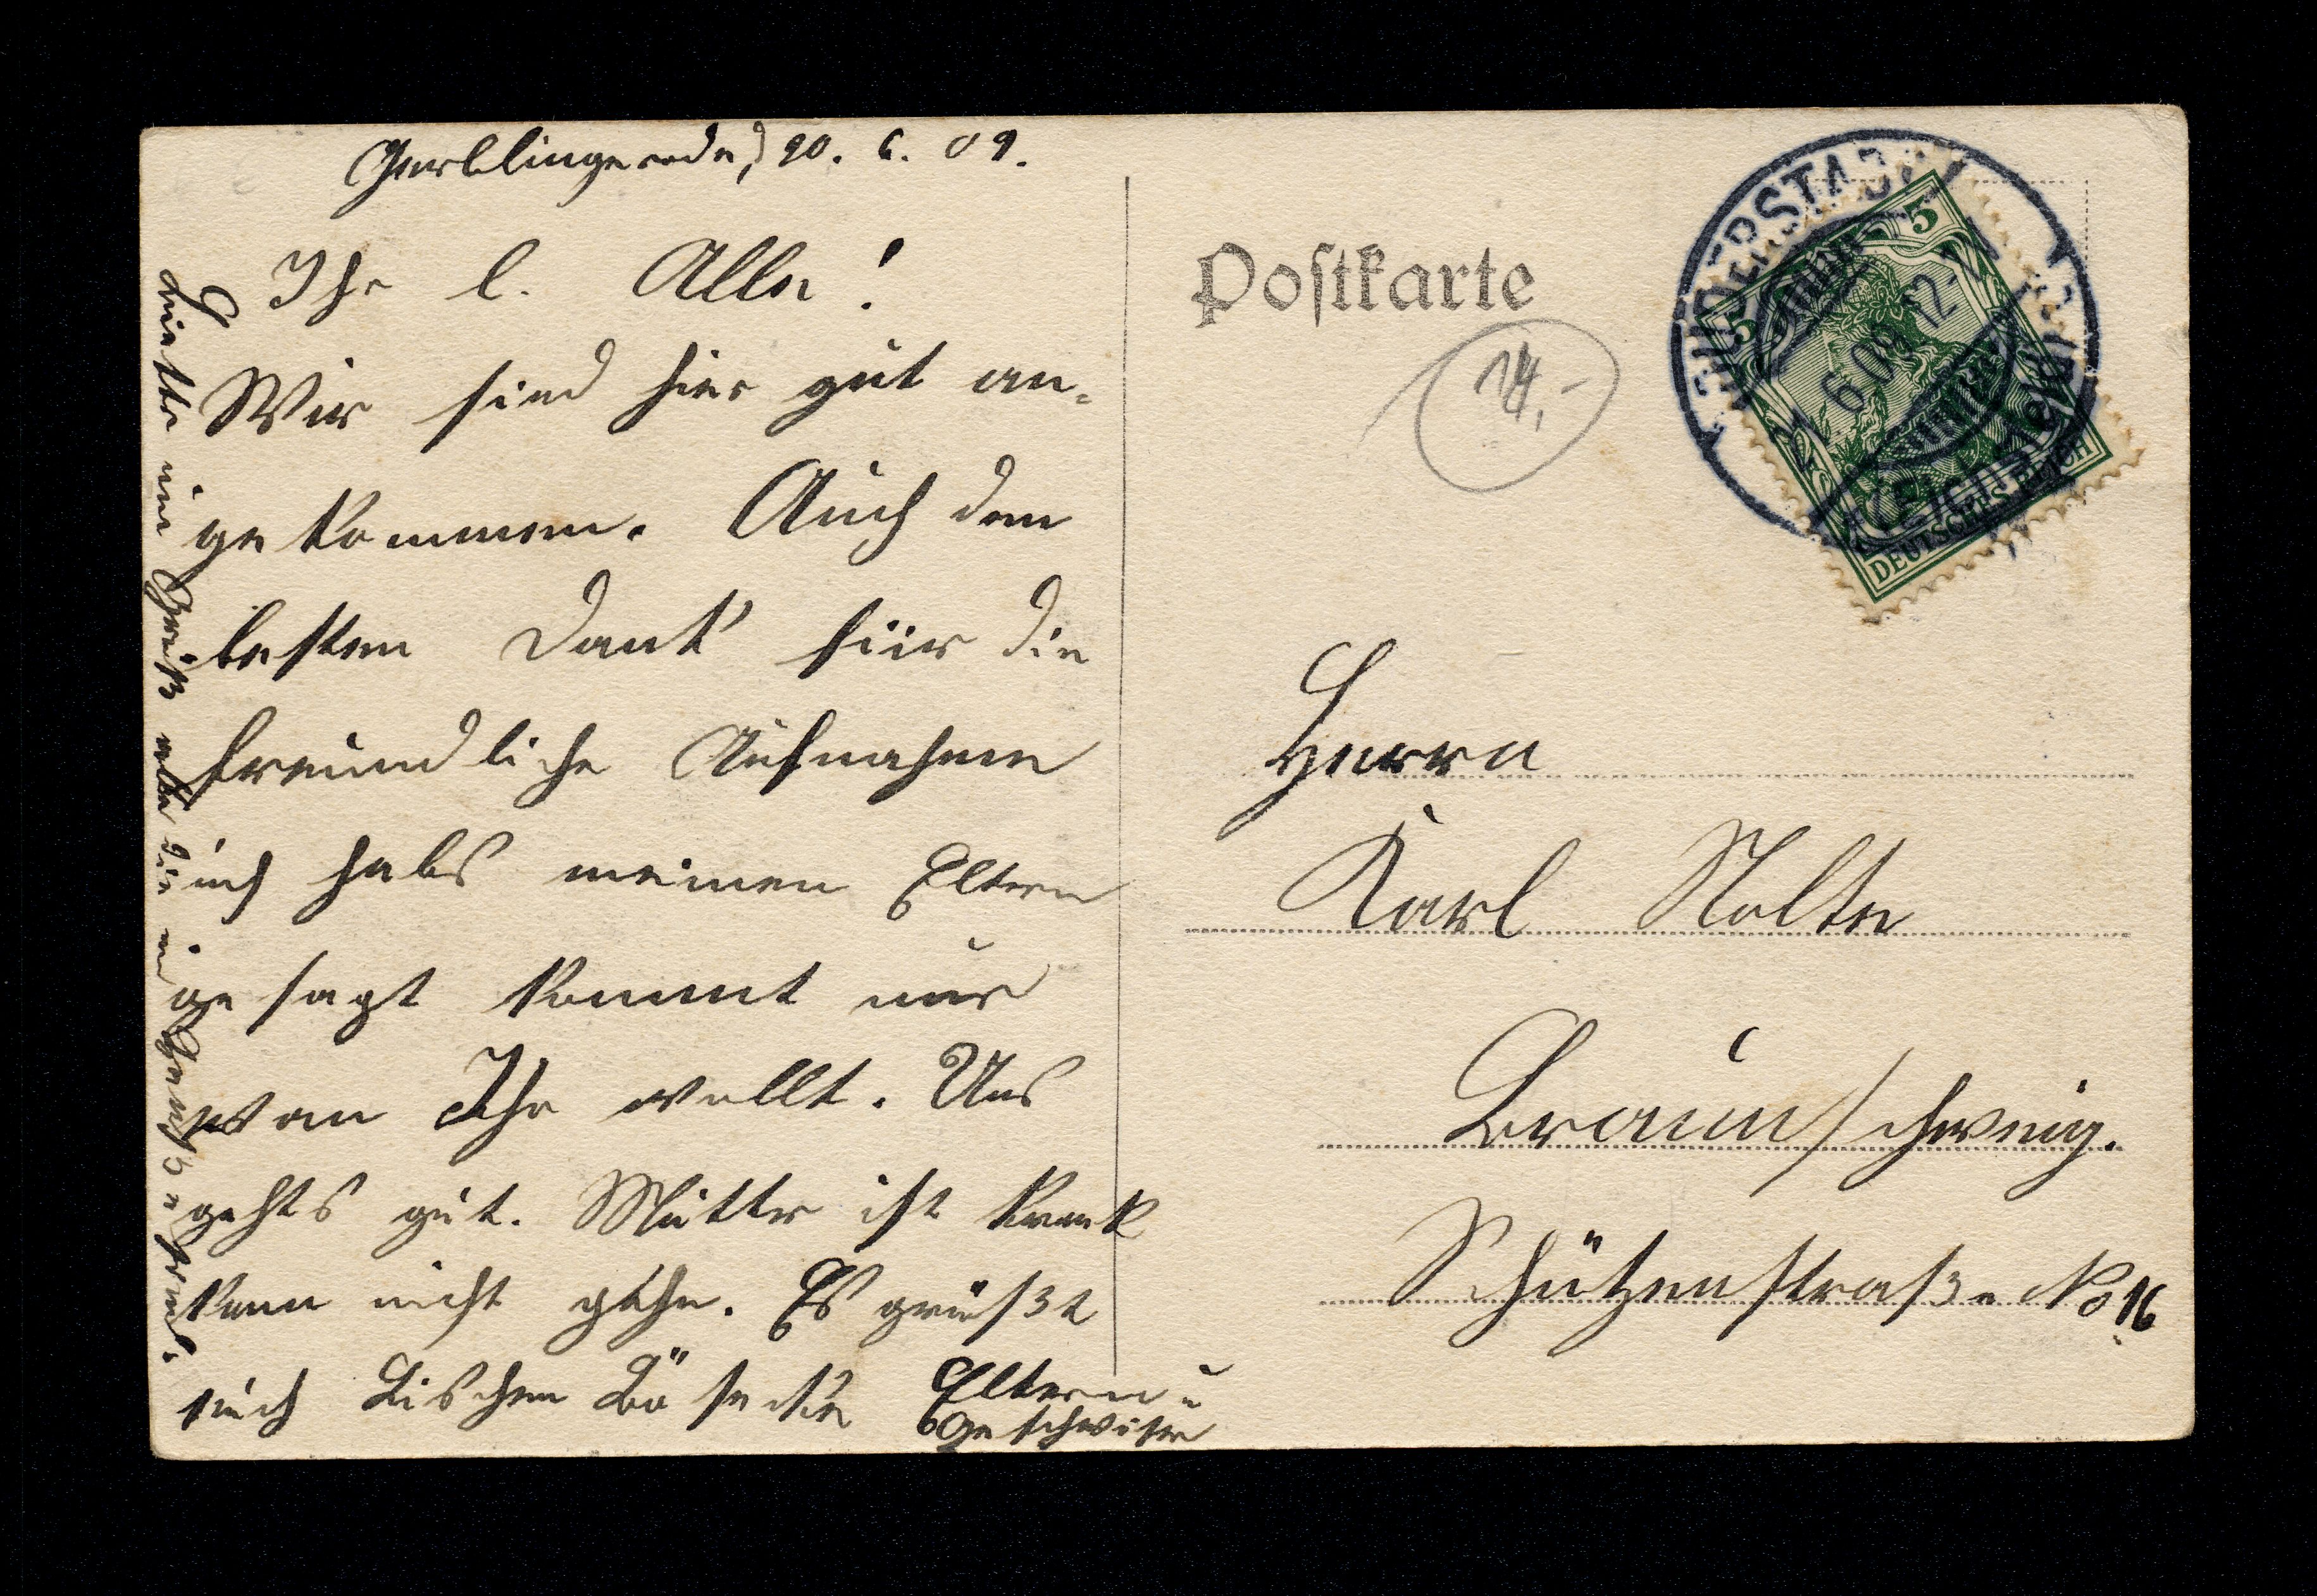 Gerblingerode, 20. 6. 09.
Ihr l. Alle!
Wir sind hier gut an-
gekommen. Auch den
besten Dank für die
freundliche Aufnahme
ich habs meinen Eltern
gesagt kommt nur
wan Ihr wollt. Uns
gehts gut. Mutter ist krank
kann nicht gehn. Es grüßt
euch Lischen Eltern u
Geschwister
Postkarte
14,-
DUDERSTADT
6.09 12-
5 5
DEUTSCHES REICH
Herrn
Karl Nolte
Braunschweig.
Schützenstraße No 16
Gruß alle die